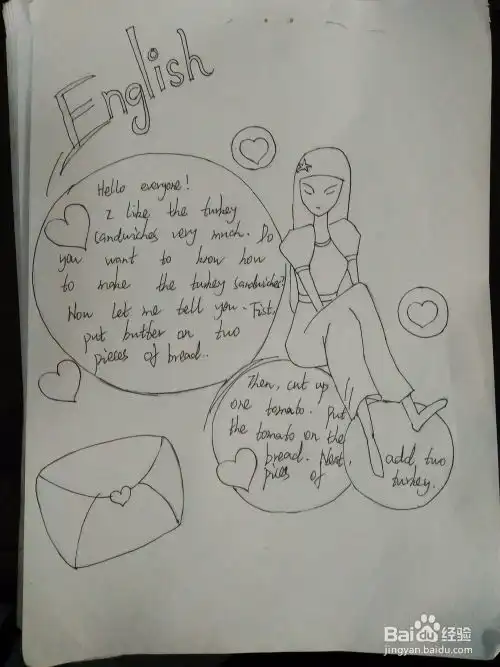 English
Hello everyone!
I like the turkey
sandwiches very much. Do
you want to know how
to make the turkey sandwiches?
Now let me tell you. Fist,
put butter on two
pieces of bread.
Then, cut up
one tomato. Put
the tomato on the
bread. Next, add two
pices of turkey.
Baidu经验
jingyan.baidu.com